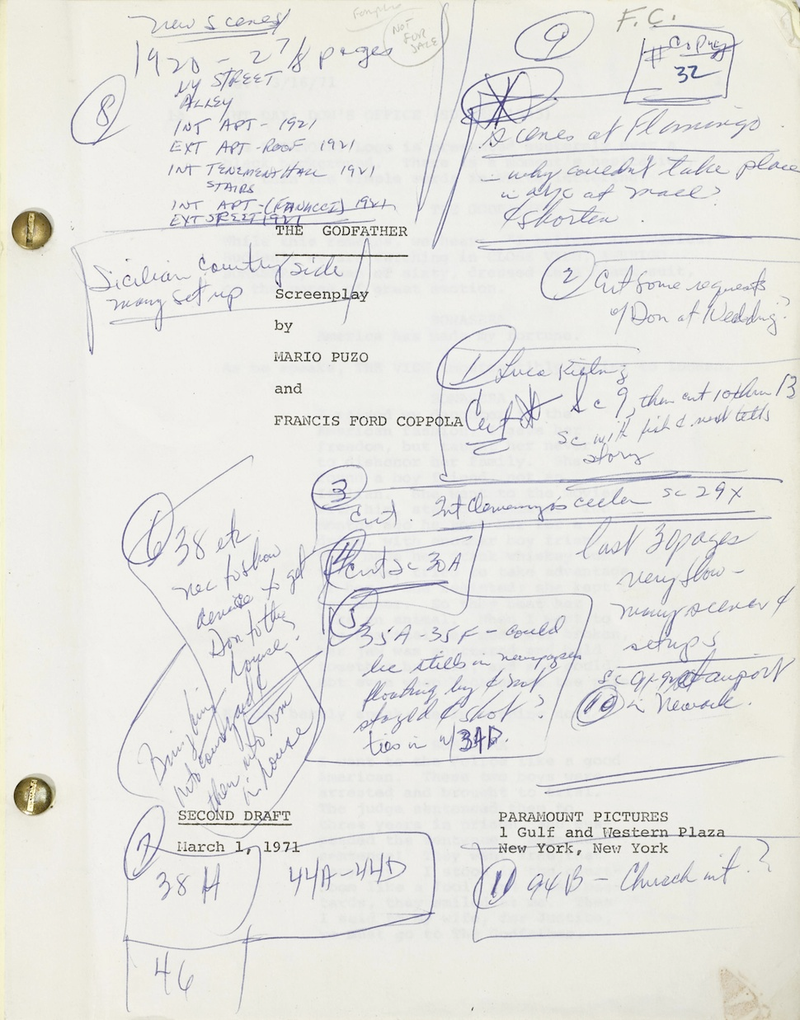 New Scenes
1920 - 2 7/8 pages
NY STREET
ALLEY
INT APT - 1921
EXT APT - ROOF 1921
INT TENEMENT HALL 1921
STAIRS
INT APT - (FANUCCI) 1921
EXT STREET 1921
8
NOT
FOR
SALE
9
F.C.
# Copy
32
Scenes at Flamingo
- why couldn't take place
in NYC at Mall?
& shorten.
THE GODFATHER
Sicilian Country side
many set up
Screenplay
by
MARIO PUZO
and
FRANCIS FORD COPPOLA
2 Cut some requests
of Don at Wedding?
1 Luca
Cut Sc 9, then cut 10 thru 13
Sc with fish & next tells
story
3
Cut. Int Clemenza's cellar sc 29X
4
Cut sc 30A
5
35A-35F - could
be stills in newspapers
floating by & not
staged & shot?
ties in w/ 3AB.
6 38 etc
nec to show
device to get
Don to the
house?
Bring him
into courtyard &
then into rm
in house
last 30 pages
very slow -
many scenes &
setups
airport
10 in Newark.
SECOND DRAFT
March 1, 1971
PARAMOUNT PICTURES
1 Gulf and Western Plaza
New York, New York
7
38 H
44A-44D
46
11 94B - Church int.?